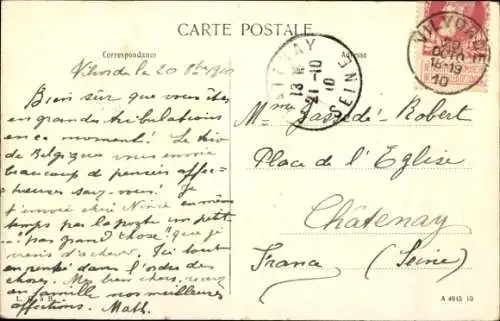 CARTE POSTALE
Correspondance
Adresse
VILVORDE
18-19
10
CHATENAY
13
21-10
10
SEINE
Vilvorde le 20 8bre 1910
Bien sûr que vous êtes
en grandes tribulations
en ce moment! Le trio
de Belgique vous envoie
beaucoup de pensées affec-
tueuses savez-vous! Je
t'envoie chez Ninie en même
temps par la poste un petit
"pas grand'chose" que je
viens d'achever. Ici tout
est rentré dans l'ordre des
choses. Mes bien chers, recevez
en famille nos meilleures
affections. Math.
Mme Jassedé-Robert
Place de l'Eglise
Châtenay
France (Seine)
A 4915 10